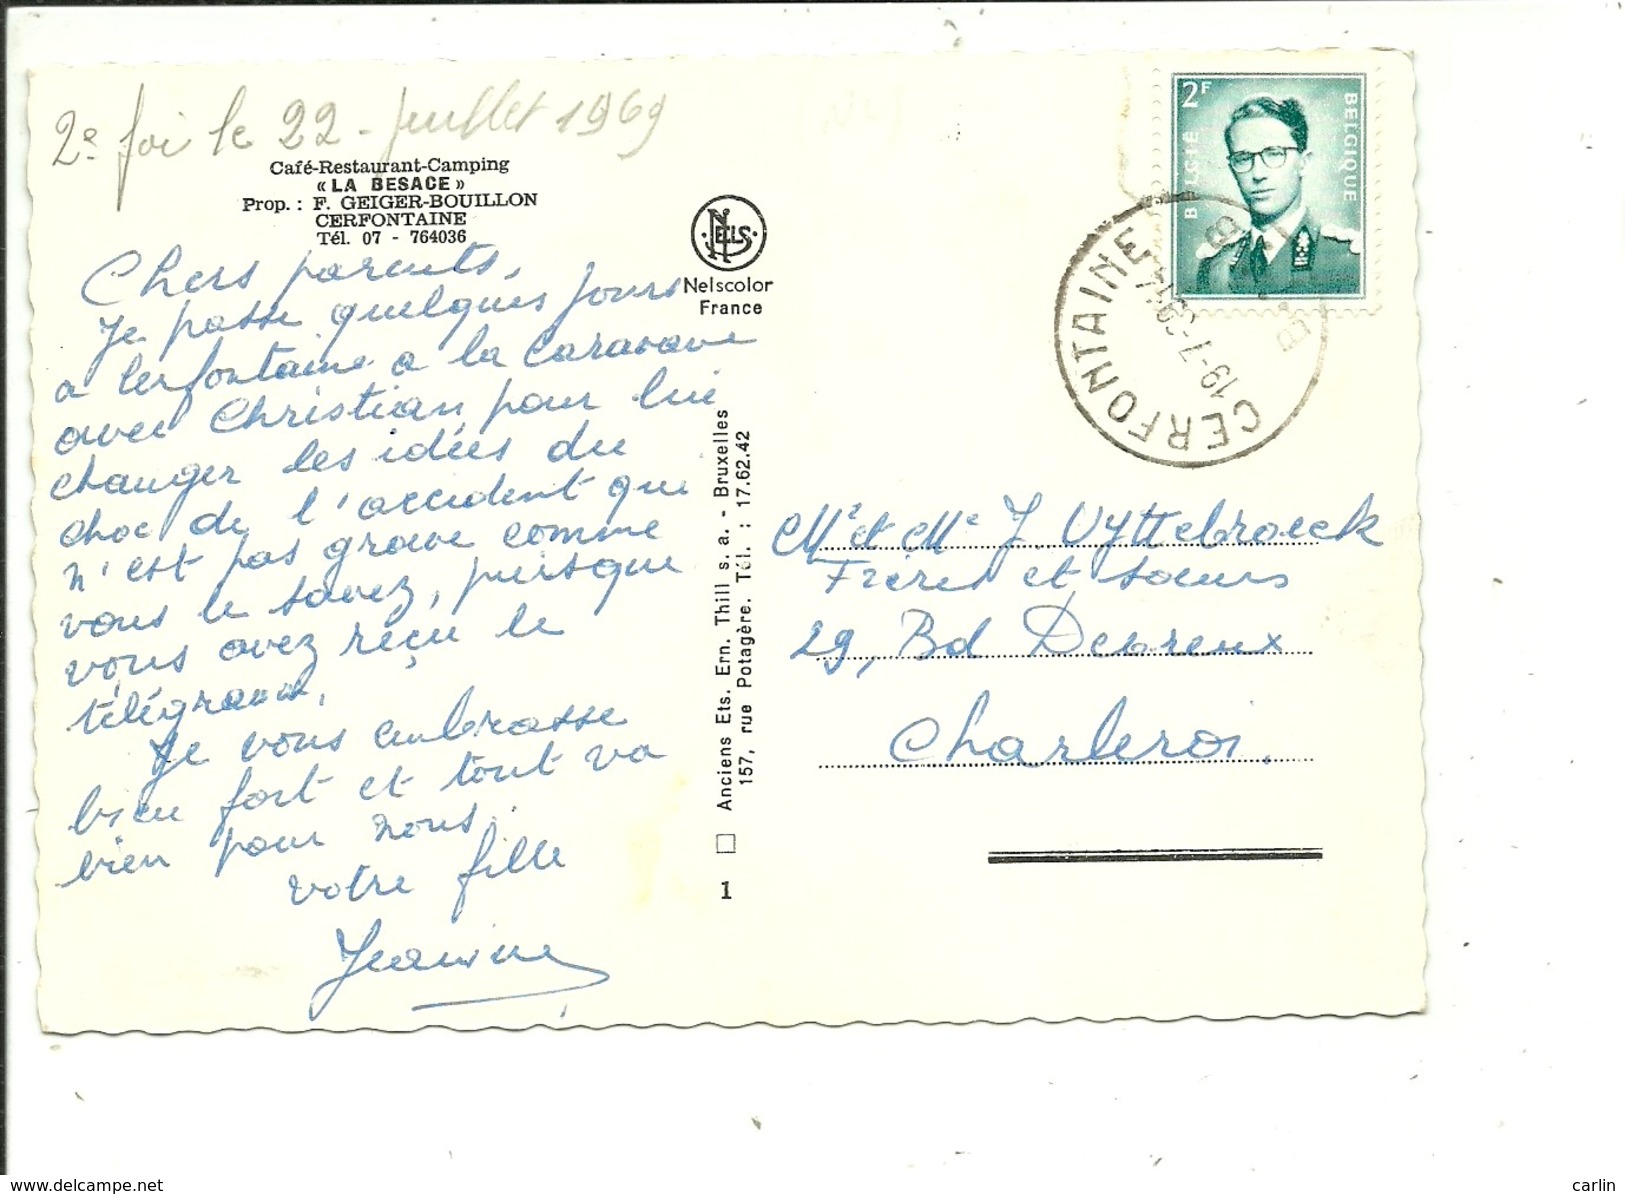 2e foi le 22 - Juillet 1969
Café-Restaurant-Camping
« LA BESACE »
Prop. : F. GEIGER-BOUILLON
CERFONTAINE
Tél. 07 - 764036
Chers parents,
Je passe quelques jours
a Cerfontaine a la Caravane
avec Christian pour lui
changer les idées du
choc de l'accident que
n'est pas grave comme
vous le savez, puisque
vous avez reçu le
télégramme,
Je vous embrasse
bien fort et tout va
bien pour nous.
votre fille
Jeanine
NELS
Nelscolor
France
Anciens Ets. Ern. Thill s. a. - Bruxelles
157, rue Potagère. Tél. : 17.62.42
1
2F
BELGIË
BELGIQUE
CERFONTAINE
19-7-69
Mr et Me J. Uyttebroeck
Frères et sœurs
29, Bd Devreux
Charleroi.
www.delcampe.net
carlin